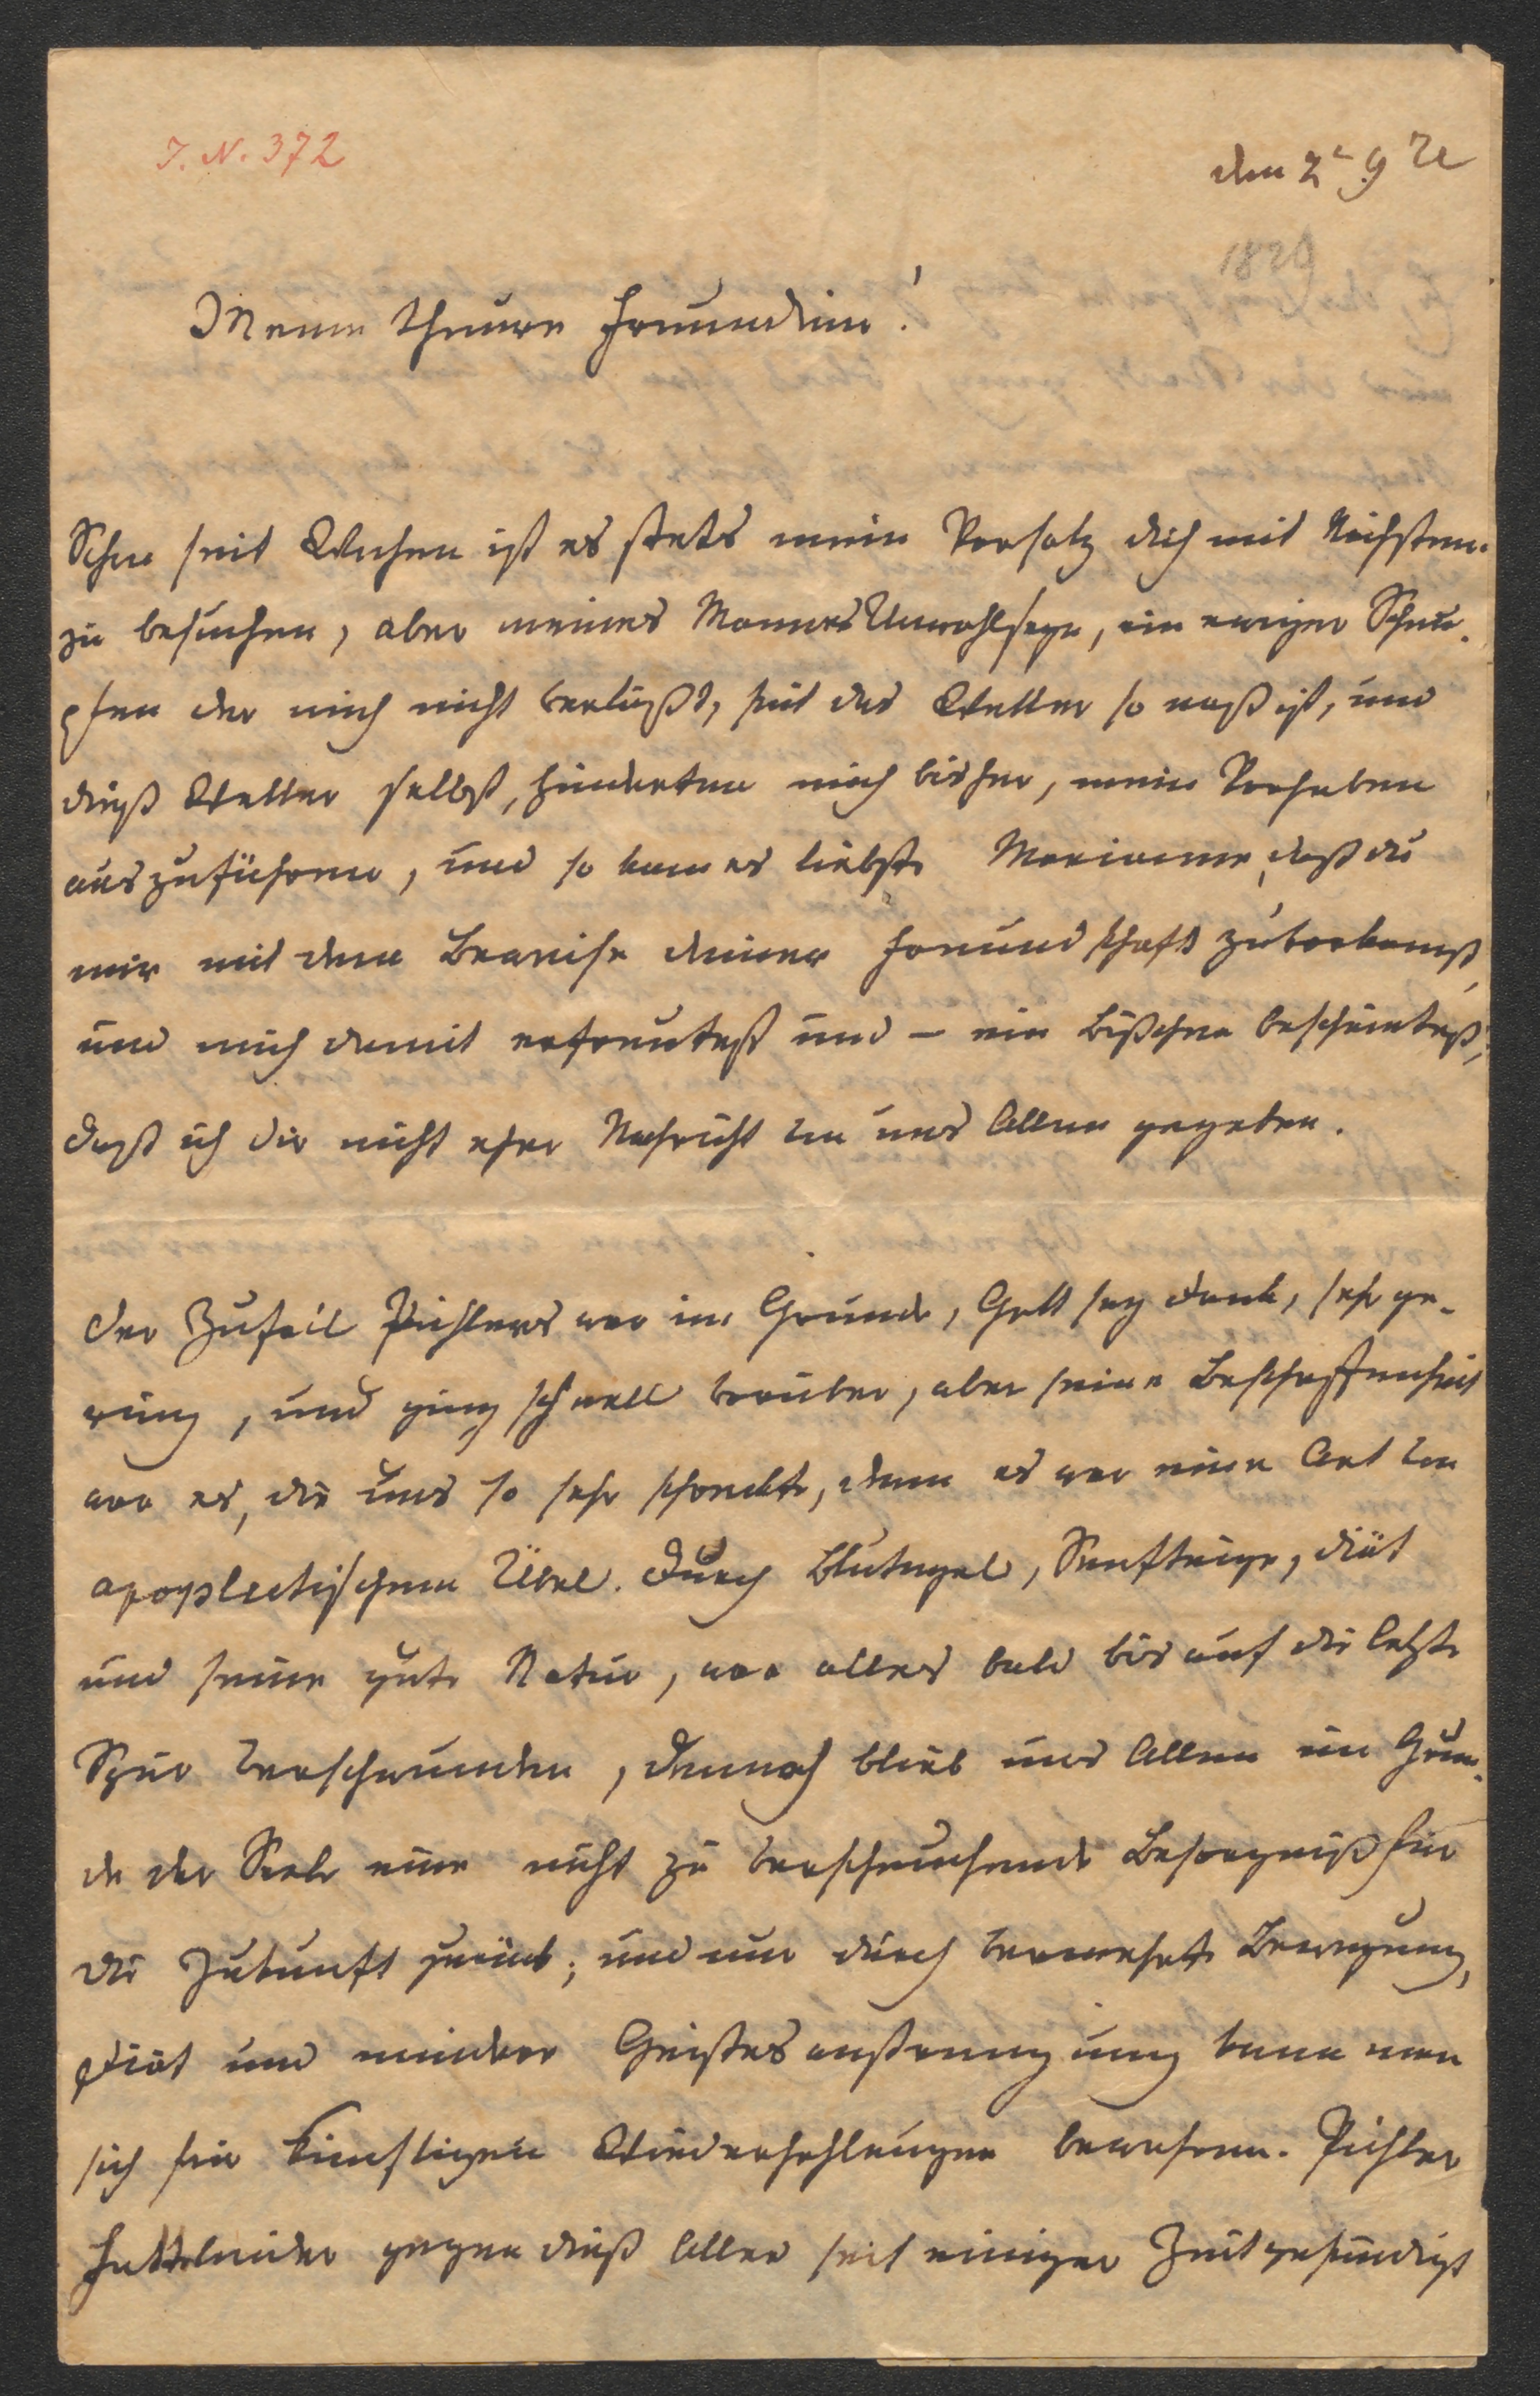 I. N. 372
den 2t 9 
1829
Meine theure Freundinn!
Schon seit Wochen ist es stets mein Vorsatz dich mit Nächstem
zu besuchen, aber meines Mannes Unwohlseyn, ein ewiger Schnu-
pfen der mich nicht verläßt, seit das Wetter so naß ist, und
dieß Wetter selbst, hinderten mich bisher, mein Vorhaben
auszuführen, und so kam es liebste Marianne, daß du
mir mit dem Beweise deiner Freundschaft zuvorkamst,
und mich damit erfreutest und – ein Bißchen beschämtest,
daß ich dir nicht eher Nachricht von uns Allen gegeben.
Der Zufall Pichlers war im Grunde, Gott sey Dank, sehr ge-
ring, und ging schnell vorüber, aber seine Beschaffenheit
war es, die uns so sehr schreckte, denn es war eine Art von
apoplectischem Übel. Durch Blutegel, Senfteige, Diät
und seine gute Natur, war alles bald bis auf die letzte
Spur verschwunden, dennoch blieb uns Allen im Grun-
de der Seele eine nicht zu verscheuchende Besorgniß für
die Zukunft zurück; und nur durch vermehrte Bewegung,
Diät und mindere Geistesanstrengung kann man
sich für künftigen Wiederhohlungen bewahren. Pichler
hatte leider gegen dieß Alles seit einiger Zeit gesündigt